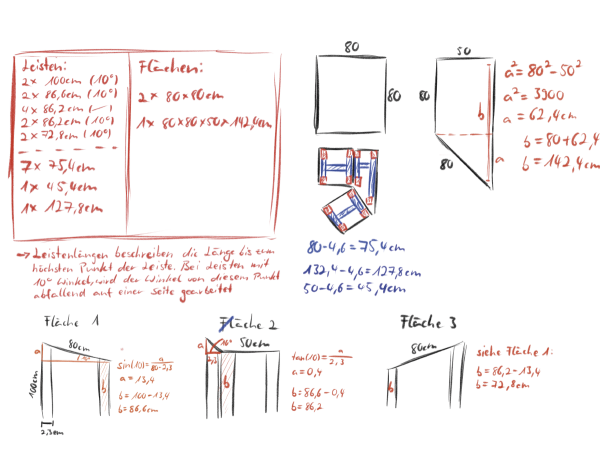 Leisten:
2x 100cm (10°)
2x 86,6cm (10°)
4x 86,2cm (✓)
2x 86,2cm (10°)
2x 72,8cm (10°)
7x 75,4cm
1x 45,4cm
1x 127,8cm
Flächen:
2x 80x80cm
1x 80x80x50x142,4cm
80
80
50
80
b
80
a
a² = 80² - 50²
a² = 3900
a = 62,4cm
b = 80 + 62,4
b = 142,4cm
80 - 4,6 = 75,4cm
132,4 - 4,6 = 127,8cm
50 - 4,6 = 45,4cm
→ Leistenlängen beschreiben die Länge bis zum
höchsten Punkt der Leiste. Bei Leisten mit
10° Winkel, wird der Winkel von diesem Punkt
abfallend auf einer Seite gearbeitet
Fläche 1
80cm
a
10°
100cm
b
2,3cm
sin(10) = a / 80-2,3
a = 13,4
b = 100 - 13,4
b = 86,6cm
Fläche 2
a
10°
50cm
2,3
b
tan(10) = a / 2,3
a = 0,4
b = 86,6 - 0,4
b = 86,2
Fläche 3
80cm
b
siehe Fläche 1:
b = 86,2 - 13,4
b = 72,8cm